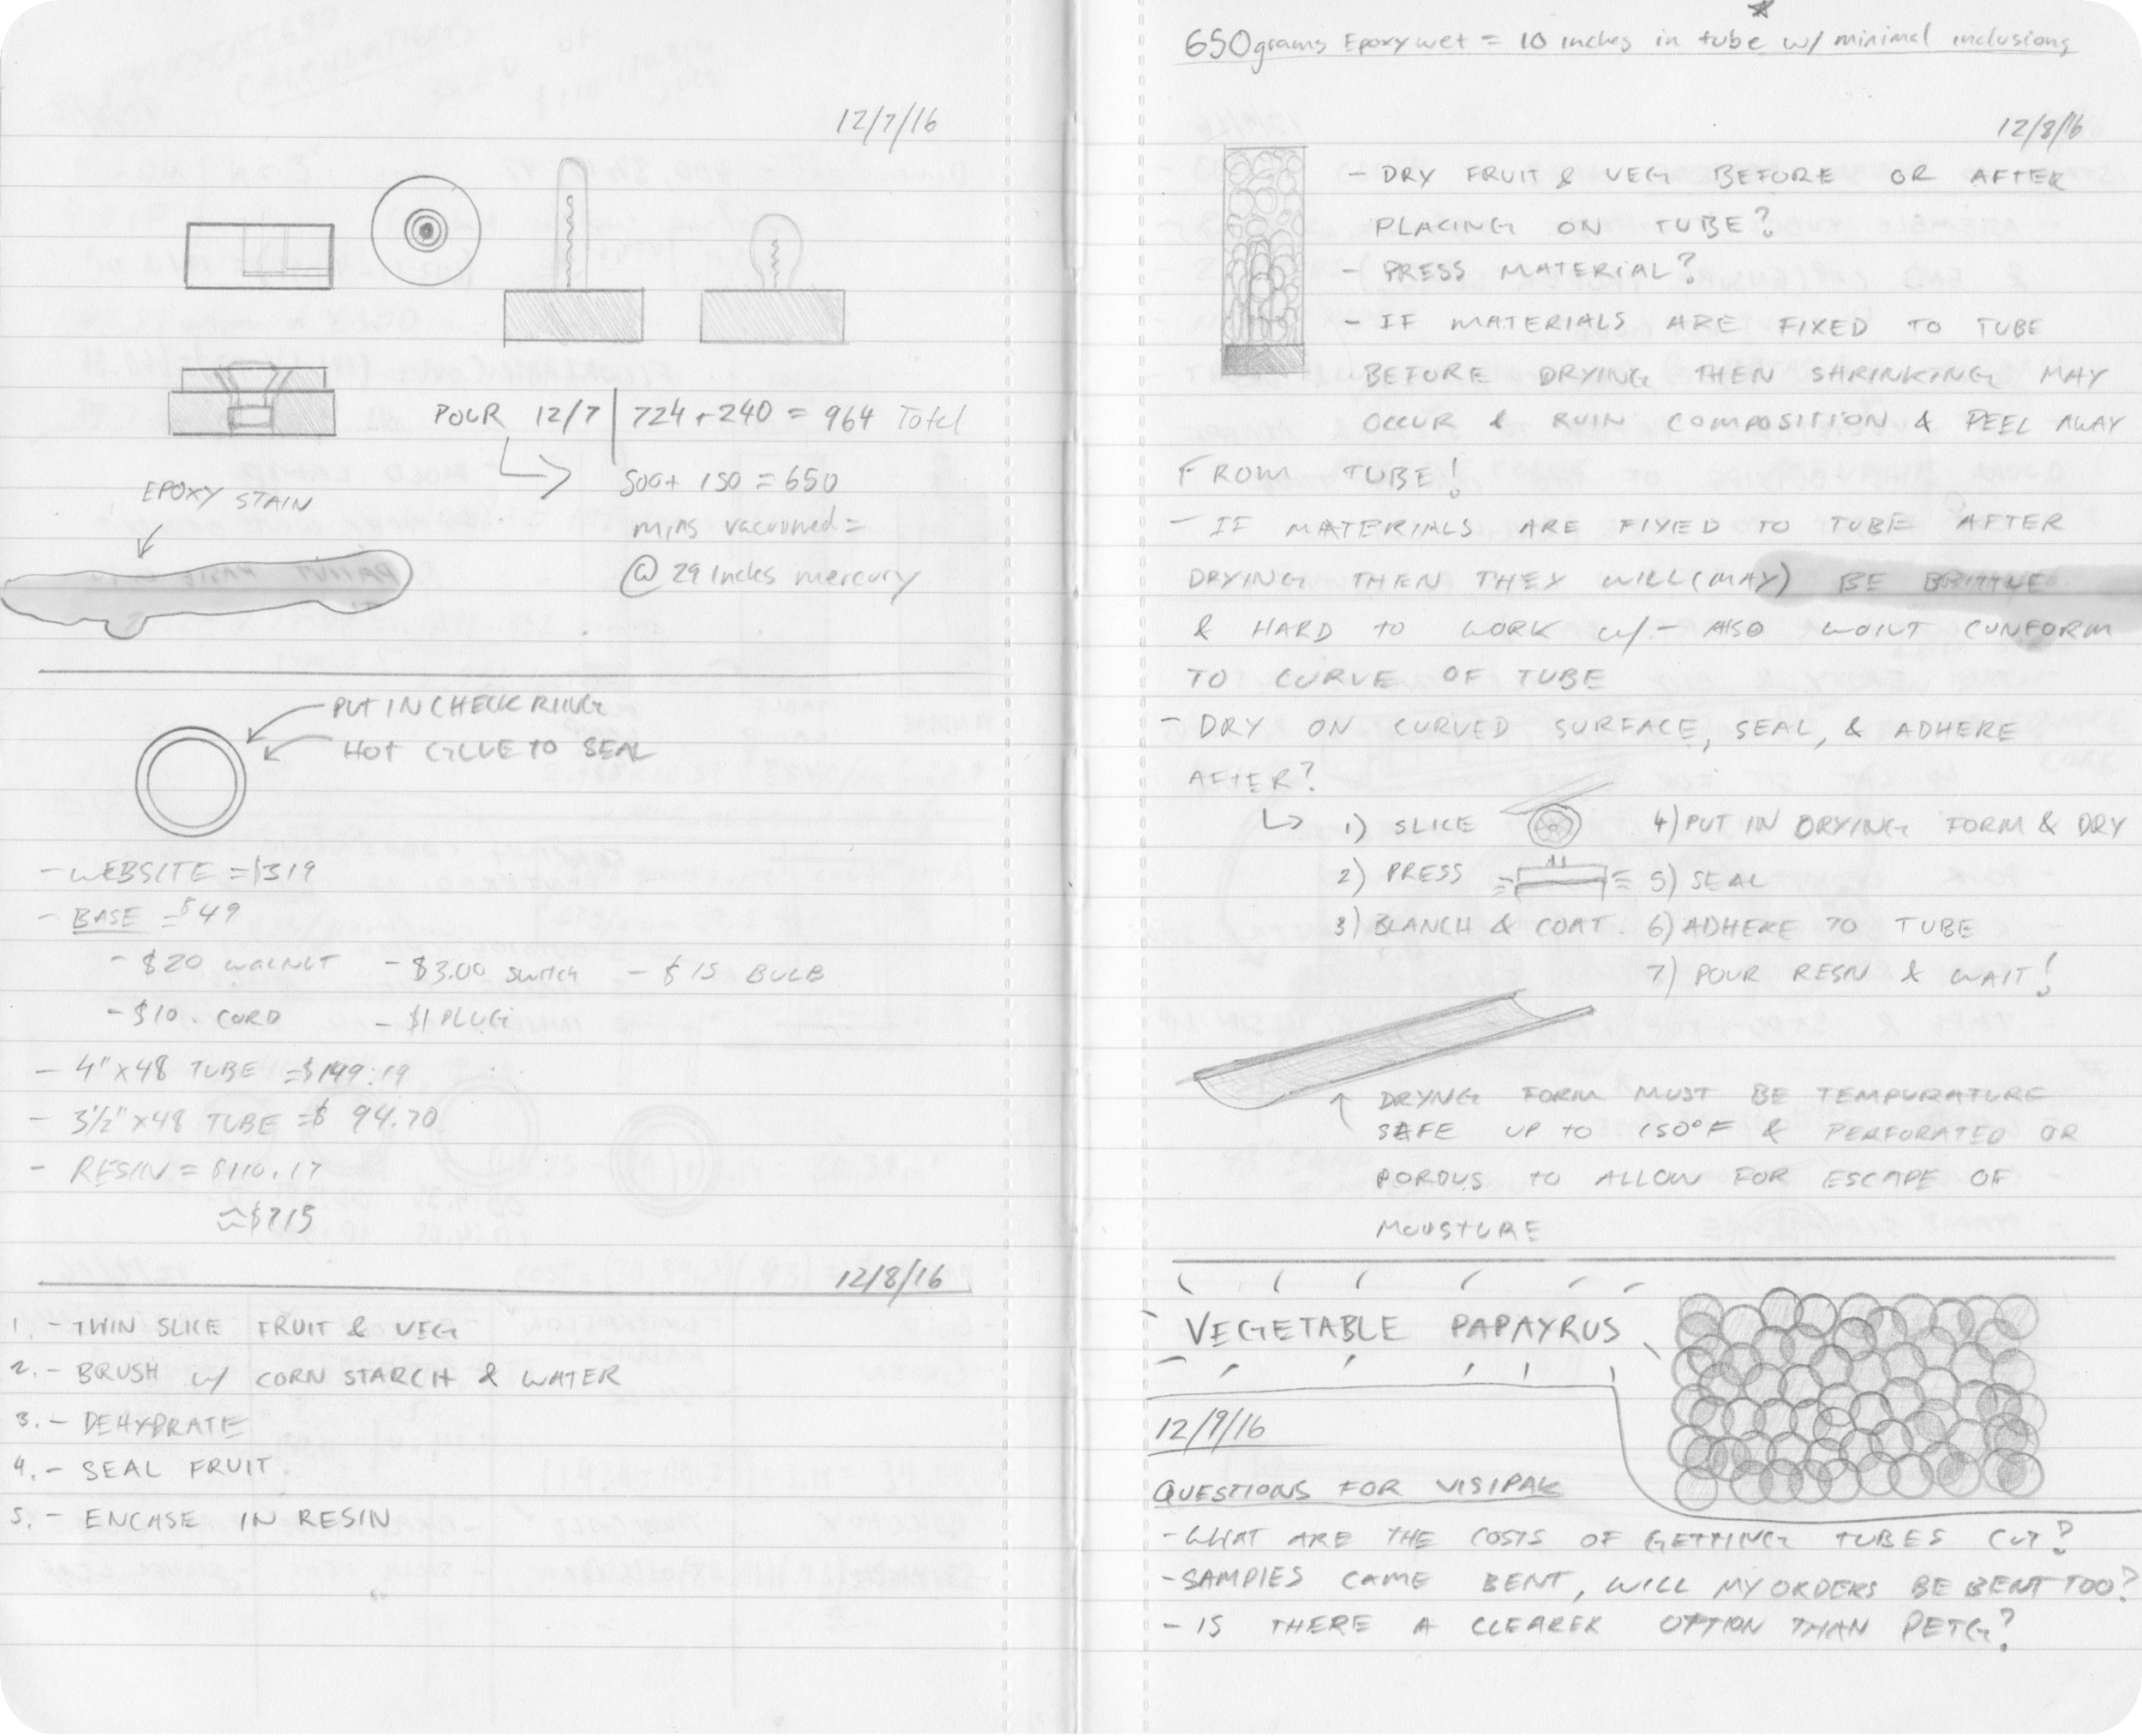 12/7/16
POUR 12/7 | 724 + 240 = 964 Total
500 + 150 = 650
mins vacuumed =
@ 29 Inches mercury
EPOXY STAIN
PUT IN CHECK RIING
HOT GLUE TO SEAL
- WEBSITE = $319
- BASE = $49
- $20 WALNUT - $3.00 SWITCH - $15 BULB
- $10. CORD - $1 PLUG
- 4" X 48 TUBE = $149.19
- 3 1/2" X 48 TUBE = $ 94.70
- RESIN = $110.17
≈ $715
12/8/16
1. - THIN SLICE FRUIT & VEG
2. - BRUSH W/ CORN STARCH & WATER
3. - DEHYDRATE
4. - SEAL FRUIT
5. - ENCASE IN RESIN
650 grams Epoxy wet = 10 inches in tube w/ minimal inclusions
12/8/16
- DRY FRUIT & VEG BEFORE OR AFTER
PLACING ON TUBE?
- PRESS MATERIAL?
- IF MATERIALS ARE FIXED TO TUBE
BEFORE DRYING THEN SHRINKING MAY
OCCUR & RUIN COMPOSITION & PEEL AWAY
FROM TUBE!
- IF MATERIALS ARE FIXED TO TUBE AFTER
DRYING THEN THEY WILL (MAY) BE BRITTLE
& HARD TO WORK W/ - ALSO WON'T CONFORM
TO CURVE OF TUBE
- DRY ON CURVED SURFACE, SEAL, & ADHERE
AFTER?
1) SLICE 4) PUT IN DRYING FORM & DRY
2) PRESS 5) SEAL
3) BLANCH & COAT. 6) ADHERE TO TUBE
7) POUR RESN & WAIT!
DRYNG FORM MUST BE TEMPURATURE
SAFE UP TO 150°F & PERFORATED OR
POROUS TO ALLOW FOR ESCAPE OF
MOUSTURE
VEGETABLE PAPAYRUS
12/9/16
QUESTIONS FOR VISIPAK
- WHAT ARE THE COSTS OF GETTING TUBES CUT?
- SAMPLES CAME BENT, WILL MY ORDERS BE BENT TOO?
- IS THERE A CLEARER OPTION THAN PETG?